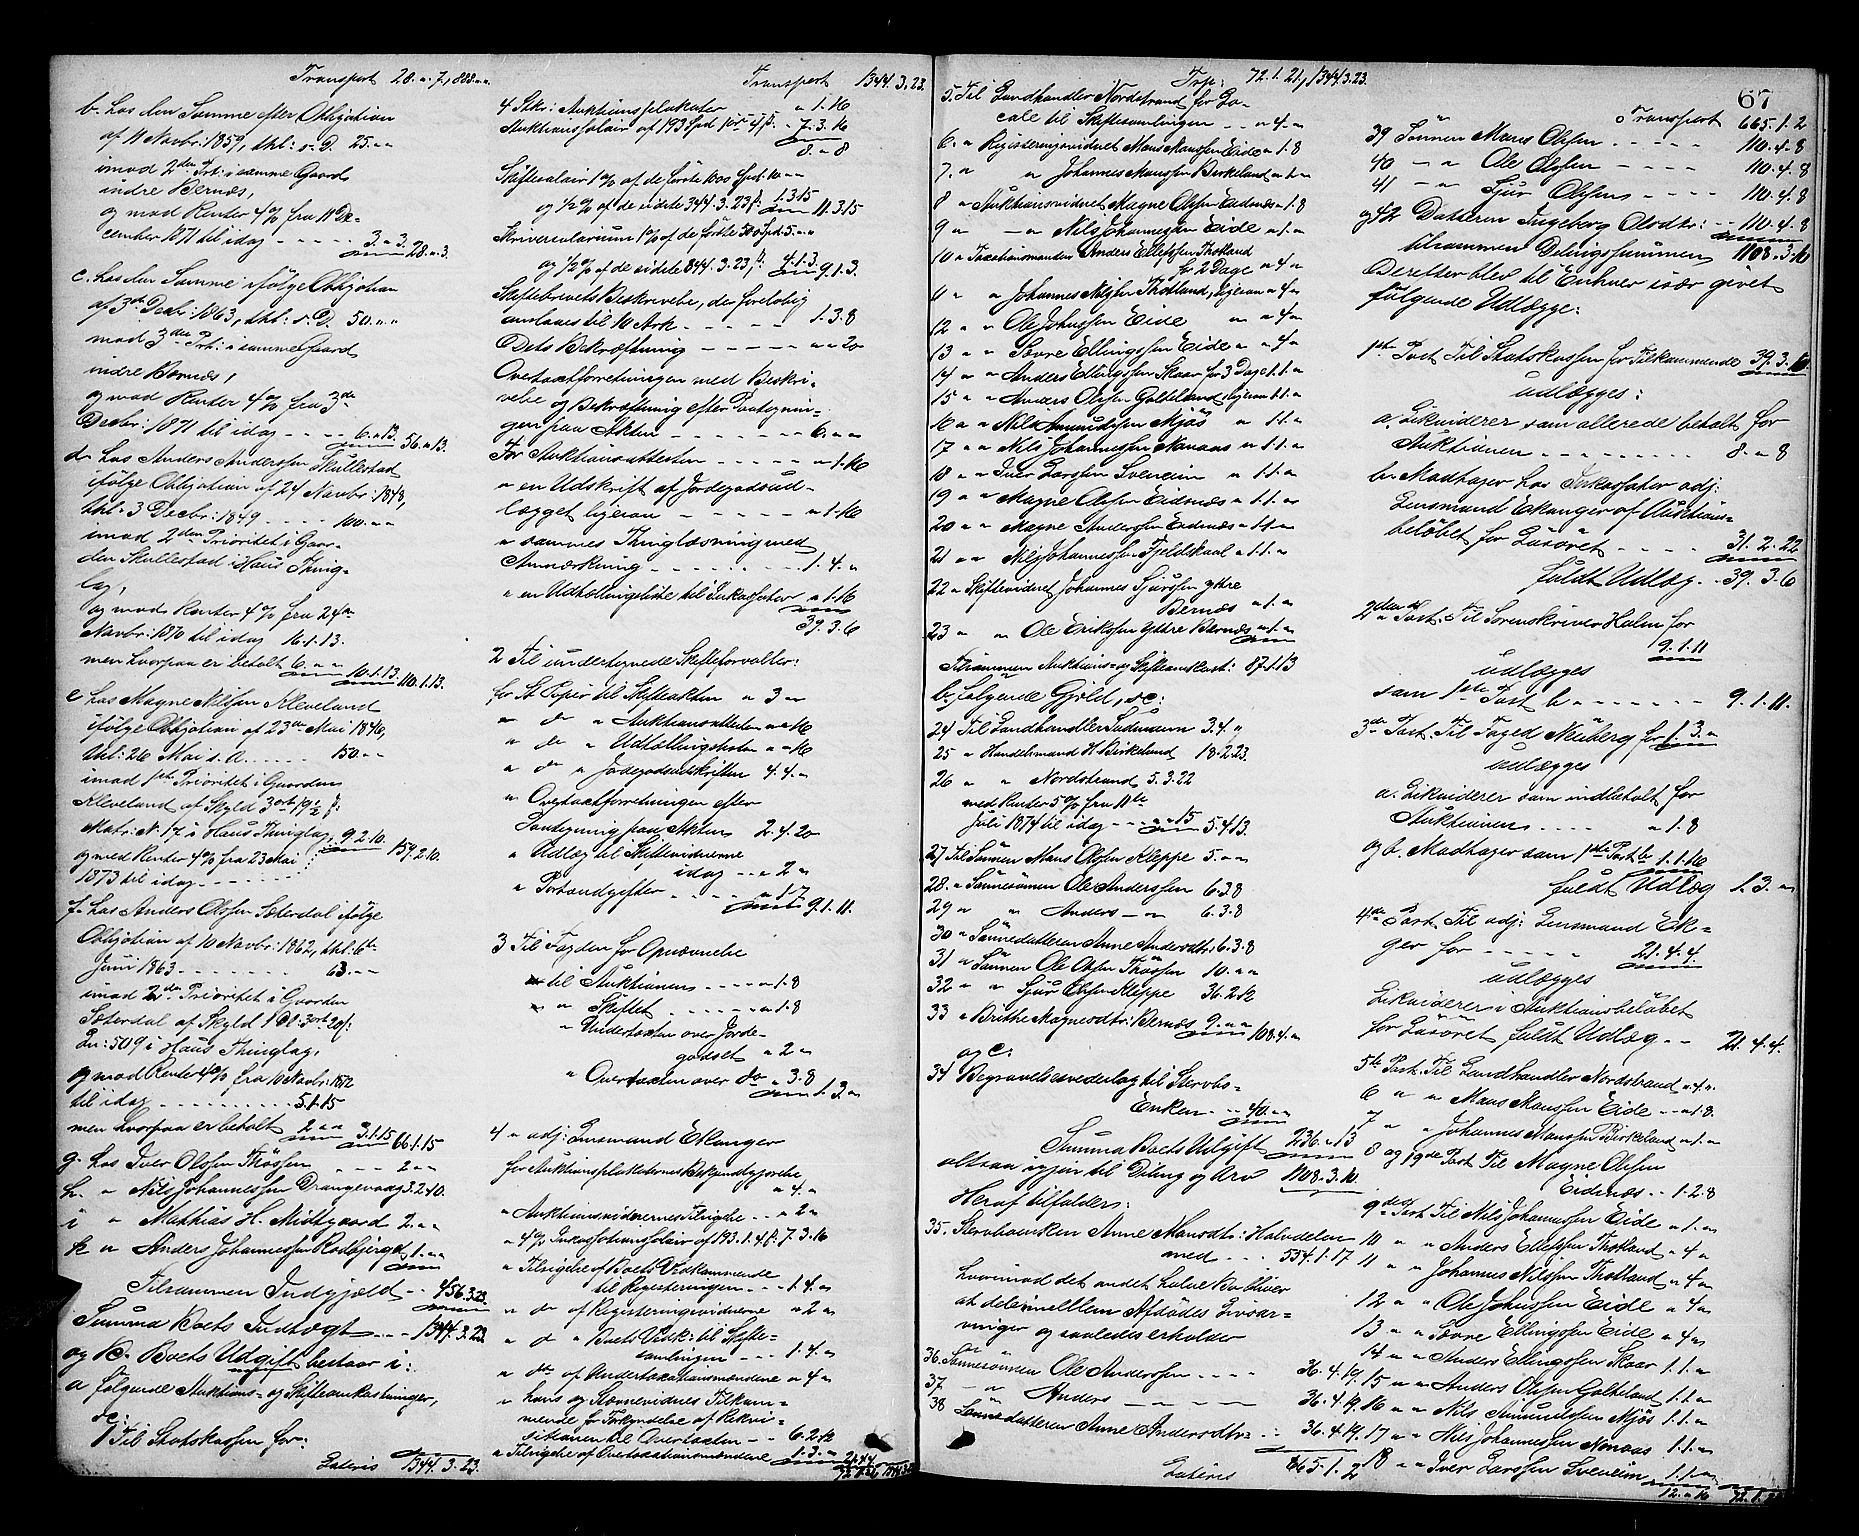 Transport 28. „ 7, 888. „ „
b. hos den Samme efter Obligation
af 11 Novbr: 1859, thl: s. D. 25. „ „
imod 2den Prt: i samme Gaard
indre Bernæs,
og med Renter 4 % fra 11 De-
cember 1871 til idag - - - - 3. „ 3. 28. „ 3.
c. hos den Samme ifølge Obligation
af 3die Decbr: 1863, thl: s. D. 50. „ „
mod 3die Prt: i samme Gaard
indre Bernæs,
og med Renter 4 % fra 3die
Decbr: 1871 til idag - - - - 6. „ 13. 56. „ 13.
d. hos Anders Anderssen Skullestad
ifølge Obligation af 24 Novbr: 1848,
thl: 3 Decbr: 1849 - - - - 100. „ „
imod 2den Prioritet i Gaar-
den Skullestad i Haus Thing-
lag,
og med Renter 4 % fra 24de
Novbr: 1870 til idag 16. 1. 13.
men hvorpaa er betalt 6. „ „ 10. 1. 13. 110. 1. 13.
e. hos Magne Nilsen Kleveland
ifølge Obligation af 23de Mai 1846,
thl: 26 Mai s. A. - - - - 150. „ „
imod 1ste Prioritet i Gaarden
Kleveland af Skyld 3 ort 19 ½ ß:
Matr: N. 17 i Haus Thinglag,
og med Renter 4 % fra 23 Mai 9. 2. 10. 159. 2. 10.
1873 til idag - - - -
f. hos Anders Olsen Sæterdal ifølge
Obligation af 10 Novbr: 1862, thl: 6te
Juni 1863 - - - - 63. „ „
imod 2den Prioritet i Gaarden
Sæterdal af Skyld 3 ort 20 ß:
Ln: 509 i Haus Thinglag,
og med Renter 4 % fra 10 Novbr: 1872
til idag - - - - 5. 1. 15
men hvorpaa er betalt 2. „ „ 3. 1. 15 66. 1. 15
g. hos Iver Olssen Thøssen - - 2. „ „
h. „ Nils Johannessen Drangevaag 3. 2. 10.
i „ Mathias H. Midtgaard 2. „ „
k „ Anders Johannessen Rødbjerget 1. „ „
Tilsammen Indgjæld - - 456. 3. 23.
Summa Boets Indtægt - - - 1344. 3. 23
og B. Boets Udgift bestaar i:
a følgende Auktions- og Skifteomkostninger,
sc:
1 Til Statskassen for:
Lateris 1344. 3. 23.
Transport 1344. 3. 23.
4 Stkr: Auktionsplakater „ 1. 16
Auktionssalair af 193 Spd 1 ort 4 ß. - 7. 3. 16
8. „ 8
Skiftesalair 1 % af de første 1000 Spd. 10 „ „
og ½ % af de sidste 344. 3. 23 ß: 1. 3. 15 11. 3. 15
Skriversalarium 1 % af de første 500 Spd. 5. „ „
og ½ % af de sidste 844. 3. 23 ß. 4. 1. 3. 9. 1. 3.
Skiftebrevets Beskrivelse, der foreløbig
anslaaes til 10 Ark - - - - - 1. 3. 8
Dets Bekræftning - - - - - „ „ 20
Overtaxtforretningen med Beskri-
velse og Bekræftning efter Paategnin-
gen paa Akten - - - - - 6. „ „
For Auktionsattesten - - - - - „ 1. 16
„ en Udskrift af Jordegodsud-
lægget ligesaa - - - - - „ 1. 16
„ sammes Thinglæsning med
Anmærkning - - - - - 1. 4. „
„ en Udtællingsliste til Inkassator „ 1. 16
39. 3. 6
2 Til undertegnede Skifteforvalter:
for St. Papir til Skifteakten „ 3 „
„ do „ Auktionsattesten „ „ 16
„ do „ Udtællingslisten „ „ 16
„ do „ Jordegodsudskriften 4. 4. „
„ Overtaxtforretningen efter
Paategning paa Akten 2. 4. 20
„ Udlæg til Skiftevidnerne
idag - - „ 2 „
„ Portoudgifter - - - - „ „ 17 9. 1. 11.
3 Til Fogden for Opnævnelse
til Auktionen - - - - „ 1. 8
„ Skiftet - - - - „ 1. 8
„ Undertaxten over Jorde-
godset „ 2 „
„ Overtaxten over do „ 3. 8 1. 3. „
4 „ adj: Lensmand Ekanger
for Auktionsplakaternes Bekjendtgjørelse
„ 4. „
„ Auktionsvidnernes Tilsigelse - - „ 2 „
„ 4 % Inkassationssalair af 193. 1. 4 ß. 7. 3. 16
„ Tilsigelse af Boets Vedkommende
til Registeringen - - - 1. 4. „
„ do af Registeringsvidnerne „ 2 „
„ do „ Boets Vedk: til Skifte-
samlingen - - - 1. 4. „
„ do af Undertaxationsmændene „ 4 „
„ hans og Stevnevidnes Tilkom-
mende for Forkyndelse af Rekvi-
sitionen til Overtaxten - - 6. 2. 12
„ Tilsigelse af Overtaxationsmændene 1. 3. „ 21. 4. 4
Trsp: 72. 1. 21, 1344. 3. 23.
5. Til Landhandler Nordstrand for Lo-
cale til Skiftesamlingen - - „ 4 „
6. „ Registeringsvidnet Mons Monssen Eide „ 1. 8
7. „ „ Johannes Monssen Birkeland „ 1. „
8 „ Auktionsvidnet Magne Olssen Eidnæs „ 1. 8
9 „ - „ Nils Johannessen Eide „ 1. „
10 „ Taxationsmanden Anders Ellefssen Thotland
for 2 Dage „ 4 „
11 „ „ Johannes Nilssen Thotland, ligesaa „ 4 „
12 „ „ Ole Johnssen Eide „ „ 4 „
13 „ „ Sovre Ellingssen Eide „ „ 4 „
14 „ „ Anders Ellingssen Skaar for 3 Dage 1. 1. „
15 „ „ Anders Olssen Galteland ligesaa 1. 1. „
16 „ „ Nils Amundssen Mjøs „ 1. 1. „
17 „ „ Nils Johannessen Nonaas „ 1. 1. „
18 „ „ Iver Larssen Sveneim „ 1. 1. „
19 „ „ Magne Olssen Eidnæs „ 1. 1. „
20 „ „ Magne Anderssen Eidnæs „ 1. 1. „
21 „ „ Nils Johannessen Fjeldskaal „ 1. 1. „
22 „ Skiftevidnet Johannes Sjurssen ytre
Bernæs „ 1. „
23 „ „ Ole Erikssen ytre Bernæs „ 1. „
Tilsammen Auktions- og Skifteomkost: 87. 1. 13
b. følgende Gjæld, sc:
24 Til Landhandler Tudmann 3. 4. „
25 „ Handelsmand H. Birkeland 18. 2. 23.
26 „ „ Nordstrand 5. 3. 22
med Renter 5 % fra 11te
Juli 1874 til idag - - - „ „ 15 5. 4. 13.
27 Til Sønnen Mons Olssen Kleppe 5. „ „
28. „ Sønnesønnen Ole Anderssen 6. 3. 8
29 „ „ Anders - „ 6. 3. 8
30 „ Sønnedatteren Anne Andersdtr: 6. 3. 8
31 „ Sønnen Ole Olssen Thøssen 10. „ „
32 „ „ Sjur Olssen Kleppe 36. 2. 12
33 „ Brithe Magnesdtr: Bernæs 9. „ „ 108. 4. „
og c:
34 Begravelsesvederlag til Stervbo-
Enken - - - 40. „ „
Summa Boets Udgift 236. „ 13
altsaa igjen til Deling og Arv 1108. 3. 10.
Heraf tilfalder:
35. Stervboenken Anne Monsdtr: Halvdelen
med - - - 554. 1. 17
hvorimod det andet halve Bo bliver
at dele imellem Afdødes Livsar-
vinger og saaledes erholder
36. Sønnesønnen Ole Anderssen - - - - 36. 4. 19.
37 - „ Anders - - - - 36. 4. 19.
38 Sønnedatteren Anne Andersdtr - - 36. 4. 19.
Lateris 665. 1. 2
67
Transport 665. 1. 2
39 Sønnen Mons Olssen - - - - 110. 4. 8
40 - „ Ole Olssen - - - - 110. 4. 8
41 - „ Sjur Olssen - - - - 110. 4. 8
og 42 Datteren Ingeborg Olsdtr: - - 110. 4. 8
tilsammen Delingssummen 1108. 3. 10
Derefter blev til Enhver især givet
følgende Udlægge:
1ste Post. Til Statskassen for Tilkommende 39. 3. 6.
udlægges:
a. Likviderer som allerede betalt for
Auktionen - - - - - 8. „ 8
b. Modtager hos Inkassator adj:
Lensmand Ekanger af Auktions-
beløbet for Løsøret - - - - 31. 2. 22
fuldt Udlæg - - 39. 3. 6
2den Post. Til Sorenskriver Holm for
9. 1. 11
udlægges
som 1ste Post b - - - - 9. 1. 11.
3die Post. Til Foged Neuberg for 1. 3. „
udlægges
a. Likviderer som indbetalt for
Auktionen - - - - „ 1. 8
og b. Modtager som 1ste Post b 1. 1. 16
fuldt Udlæg 1. 3. „
4de Post. Til adj: Lensmand Ek-
ger for - - - - 21. 4. 4.
udlægges
Likviderer i Auktionsbeløbet
for Løsøret fuldt Udlæg - - 21. 4. 4.
5te Post. Til Landhandler Nordstrand „ 4 „
6 „ „ Mons Monssen Eide - - „ 1. 8.
7 „ „ Johannes Monssen Birkeland „ 1. „
8 og 19de Post. Til Magne Olssen
Eidnæs - - 1. 2. 8
9de Post. Til Nils Johannessen Eide „ 1. „
10 „ „ Anders Ellefssen Thotland „ 4 „
11 „ „ Johannes Nilssen Thotland „ 4 „
12 „ „ Ole Johnssen Eide „ 4 „
13 „ „ Sovre Ellingssen Eide „ 4 „
14 „ „ Anders Ellingssen Skaar 1. 1. „
15 „ „ Anders Olssen Galteland 1. 1. „
16 „ „ Nils Amundssen Mjøs 1. 1. „
17 „ „ Nils Johannessen Nonaas 1. 1. „
18 „ „ Iver Larssen Sveneim 1. 1. „
12. „ 16